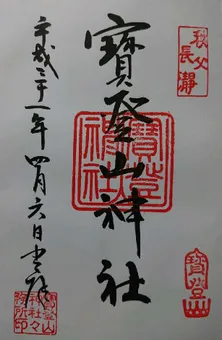 秩父
長瀞
寳登山神社
寳登山神社
寳登
平成三十一年四月六日
寳登山
神社々
務所印